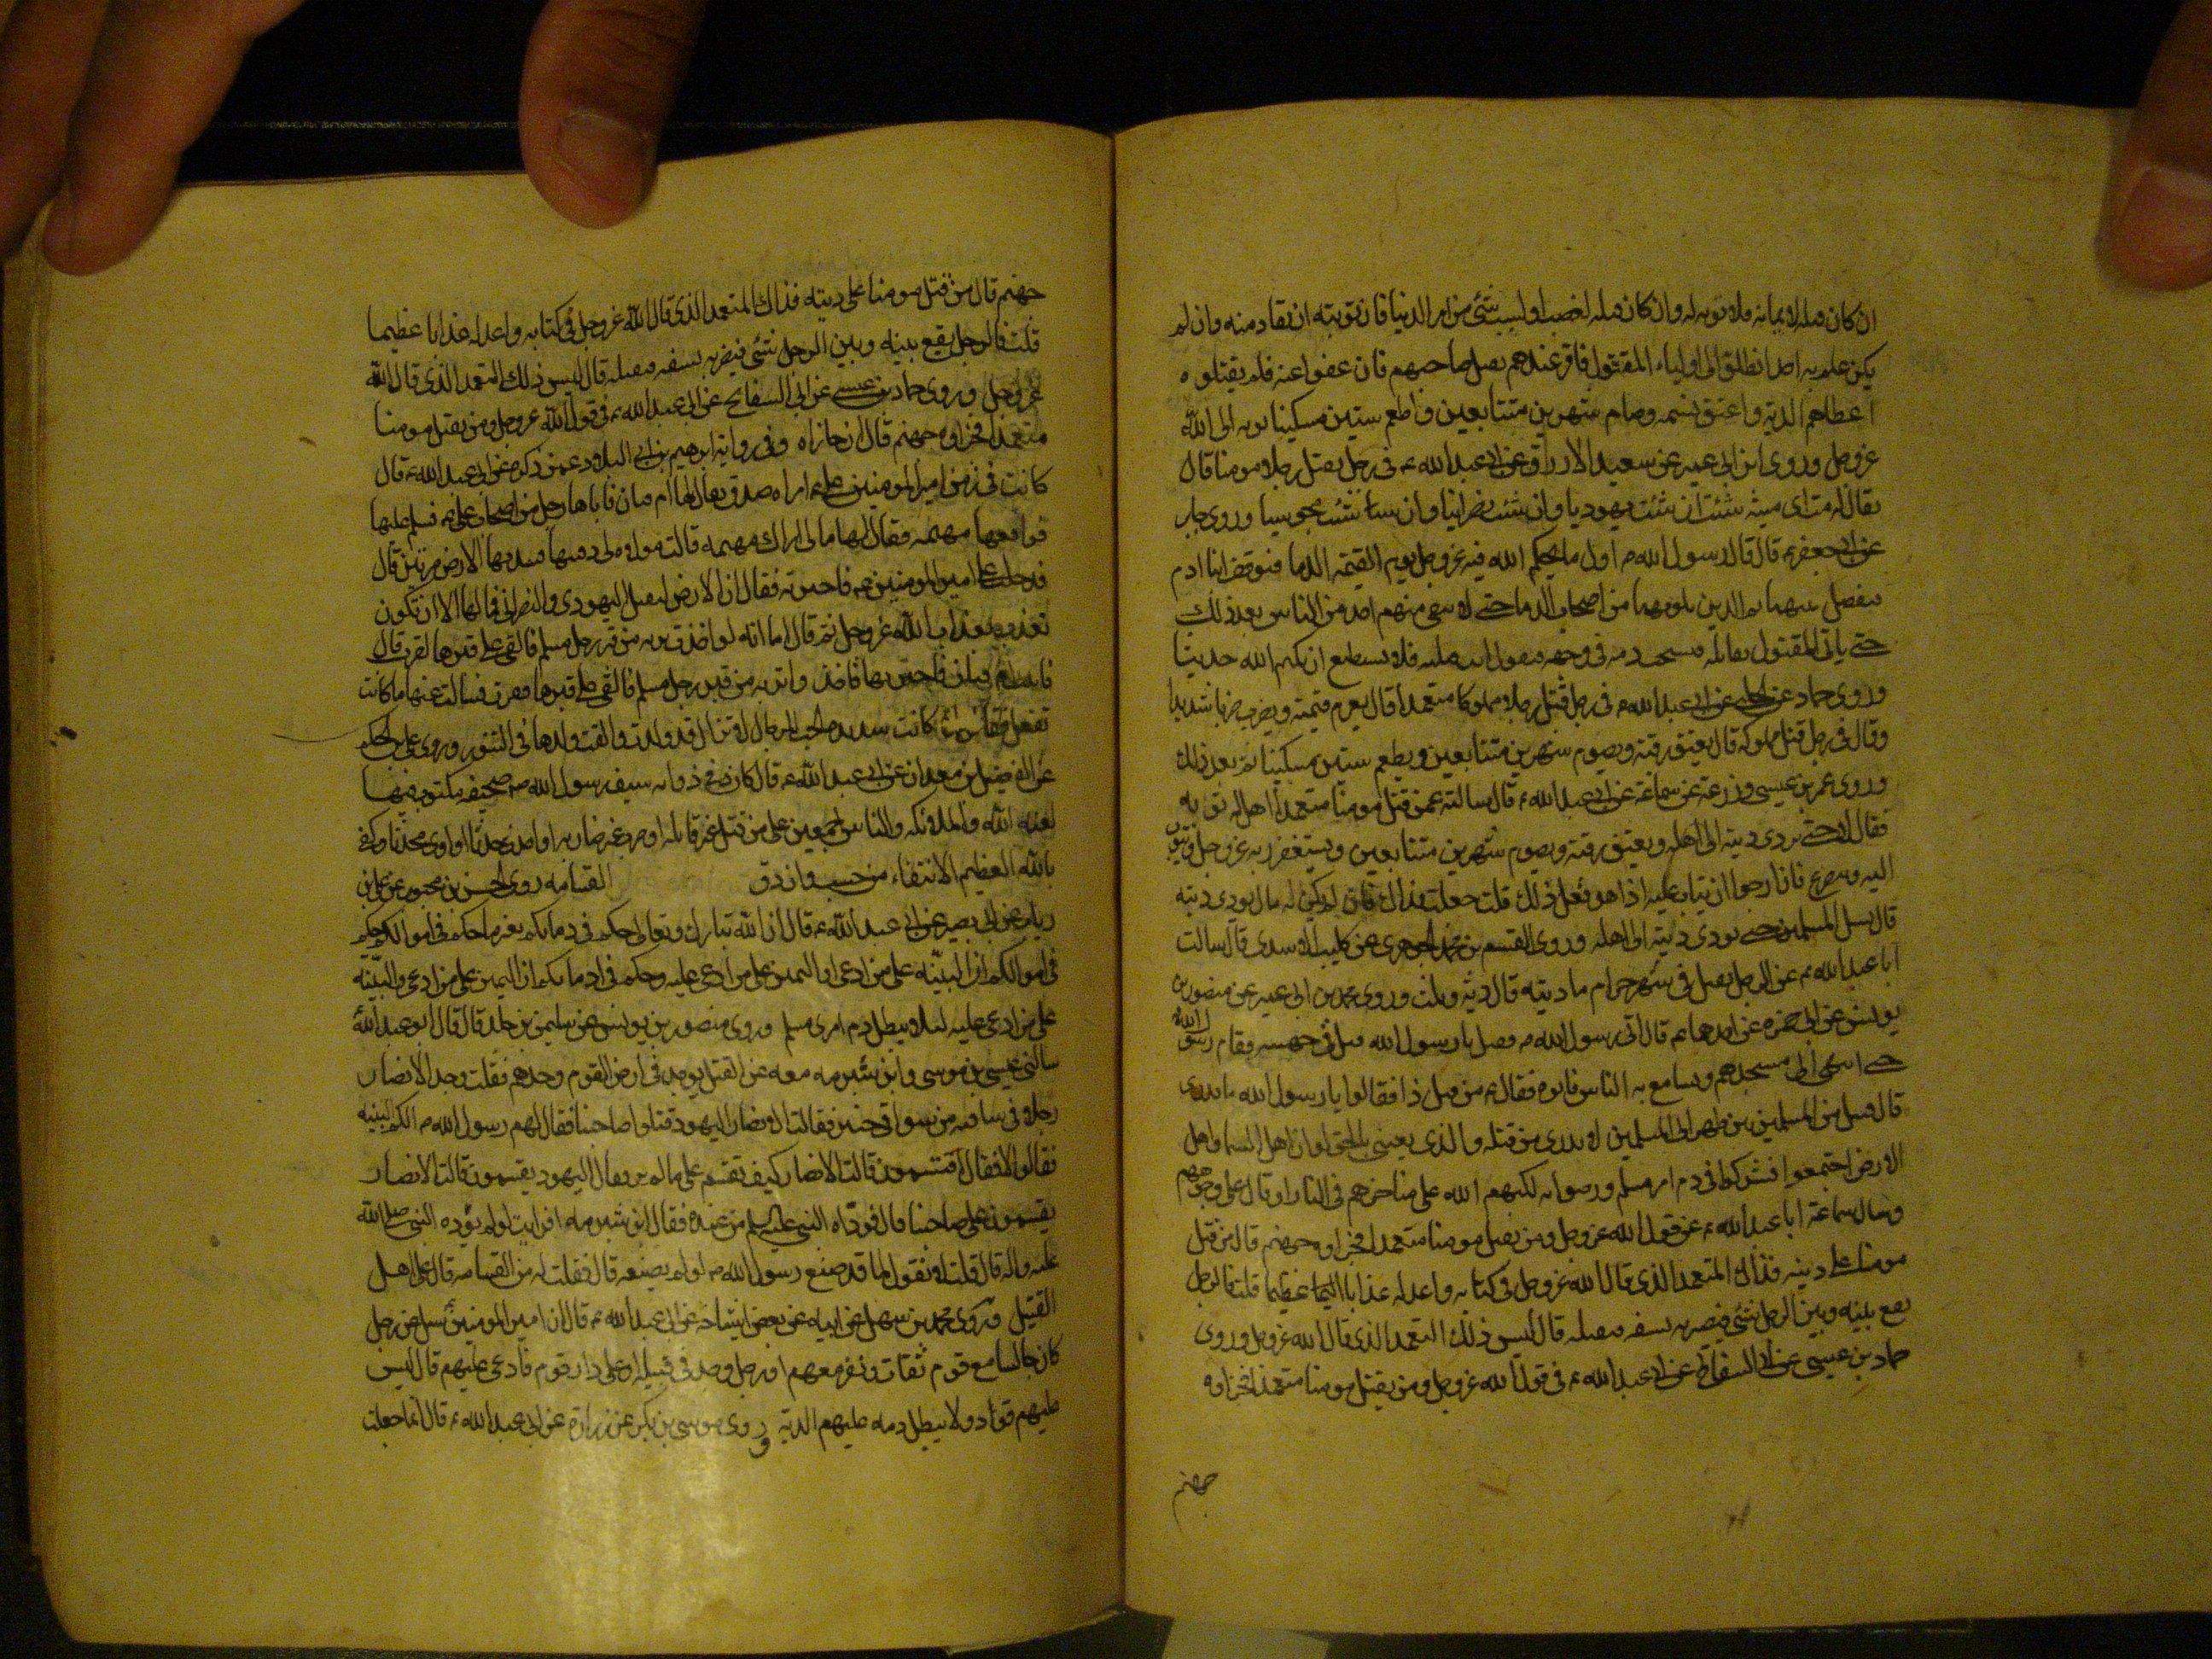 ان كان قتله لايمانه فلا توبه له وان كان قتله لغضب او لسبب شئ من امر الدنيا فان توبته ان يقاد منه وان لم
يكن علم به احد انطلق الى اولياء المقتول فاقر عندهم بقتل صاحبهم فان عفوا عنه فلم يقتلوه
اعطاهم الدية واعتق نسمه وصام شهرين متتابعين واطعم ستين مسكينا توبه الى الله
عز وجل وروى ابن ابى عمير عن سعيد الازرق عن ابى عبد الله ع فى رجل يقتل رجلا مومنا قال
يقال له مت اى ميته شئت ان شئت يهوديا وان شئت نصرانيا وان شئت مجوسيا وروى جابر
عن ابى جعفر ع قال قال رسول الله ص اول ما يحكم الله فيه عز وجل يوم القيمة الدما فيوقف ابنا ادم
فيفصل بينهما ثم الذين يلونهما من اصحاب الدما حتى لا يبقى منهم احد من الناس بعد ذلك
حتى ياتى المقتول بقاتله فيشخب دمه فى وجهه فيقول انت قتلته فلا يستطيع ان يكتم الله حديثا
وروى حماد عن الحلبى عن ابى عبد الله ع فى رجل قتل رجلا مملوكا متعمدا قال يغرم قيمته ويضرب ضربا شديدا
وقال فى رجل قتل مملوكه قال يعتق رقبة ويصوم شهرين متتابعين ويطعم ستين مسكينا ثم بعد ذلك
وروى عمر بن عيسى وزرعة عن سماعة عن ابى عبد الله ع قال سالته عمن قتل مومنا متعمدا هل له توبه
فقال لا حتى يردى ديته الى اهله ويعتق رقبة ويصوم شهرين متتابعين ويستغفر ربه عز وجل ويتوب
اليه ويتضرع فانا ارجوا ان يتاب عليه اذا هو فعل ذلك قلت جعلت فداك فان لم يكن له مال يودى ديته
قال يسل المسلمين حتى يودى ديته الى اهله وروى القسم بن محمد الجوهرى عن كليب الاسدى قال سالت
ابا عبد الله ع عن الرجل يقتل فى شهر حرام ما ديته قال دية وثلث وروى محمد بن ابى عمير عن منصور بن
يونس عن ابى حمزه عن احدهما ع قال اتى رسول الله ص فقيل يا رسول الله قتيل فى جهينه فقام رسول الله
حتى انتهى الى مسجدهم وتسامع به الناس فاتوه فقال ع من قتل ذا فقالوا يا رسول الله ما ندرى
قال قتيل من المسلمين بين ظهرانى المسلمين لا يدرى من قتله والذى بعثنى بالحق لو ان اهل السما واهل
الارض اجتمعوا فشركوا فى دم امر مسلم ورضوا به لكبهم الله على مناخرهم فى النار او قال على وجوههم
وسال سماعة ابا عبد الله ع عن قول الله عز وجل ومن يقتل مومنا متعمدا فجزاوه جهنم قال من قتل
مومنا على دينه فذاك المتعمد الذى قال الله عز وجل فى كتابه واعد له عذابا اليما عظيما قلت فالرجل
يقع بينه وبين الرجل شئ فيضربه بسيفه فيقتله قال ليس ذلك المتعمد الذى قال الله عز وجل وروى
حماد بن عيسى عن ابى السفاتج عن ابى عبد الله ع فى قول الله عز وجل ومن يقتل مومنا متعمدا فجزاوه
جهنم
جهنم قال من قتل مومنا على دينه فذاك المتعمد الذى قال الله عز وجل فى كتابه واعد له عذابا عظيما
قلت فالرجل يقع بينه وبين الرجل شئ فيضربه بسيفه فيقتله قال ليس ذلك المتعمد الذى قال الله
عز وجل وروى حماد بن عيسى عن ابى السفاتج عن ابى عبد الله ع فى قول الله عز وجل ومن يقتل مومنا
متعمدا فجزاوه جهنم قال ان جازاه وفى رواية ابرهيم بن ابى البلاد عمن ذكره عن ابى عبد الله ع قال
كانت فى زمن امير المومنين على ع امراه صدق يقال لها ام فتان فاتاها رجل من اصحاب على ع فسلم عليها
فوافقها مهتمه فقال لها ما لى اراك مهتمه قالت مولاه لى دفنتها فنبذتها الارض مرتين قال
فدخلت على امير المومنين ع فاخبرته فقال ان الارض لتقبل اليهودى والنصرانى فما لها الا ان تكون
تعذب بعذاب الله عز وجل ثم قال اما انه لو اخذت تربه من قبر رجل مسلم فالقى على قبرها لقرت قال
فاتيت ام فتان فاخبرتها فاخذت تربه من قبر رجل مسلم فالقى على قبرها فقرت فسالت عنها ما كانت
تفعل فقالوا كانت شديده الحب للرجال لا تزال قد ولدت والقت ولدها فى التنور وروى على بن الحكم
عن الفضيل بن سعدان عن ابى عبد الله ع قال كان فى ذوابه سيف رسول الله ص صحيفه مكتوب فيها
لعنه الله والملائكه والناس اجمعين على من قتل غير قاتله او ضرب غير ضاربه او احدث حدثا او اوى محدثا وكفر
بالله العظيم الانتفاء من حسب وان دق القسامه روى الحسن بن محبوب عن على بن
رياب عن ابى بصير عن ابى عبد الله ع قال ان الله تبارك وتعالى حكم فى دمائكم بغير ما حكم فى اموالكم حكم
فى اموالكم ان البينه على من ادعى واليمين على من ادعى عليه وحكم فى دمائكم ان اليمين على من ادعى والبينه
على من ادعى عليه ليلا يبطل دم امرى مسلم وروى منصور بن يونس عن سليمن بن خلد قال قال ابو عبد الله
سالنى عيسى بن موسى وابن شبرمه معه عن القتيل يوجد فى ارض القوم وحدهم فقلت وجد الانصار
رجلا فى ساقيه من سواقى خيبر فقالت الانصار اليهود قتلوا صاحبنا فقال لهم رسول الله ص الكم بينه
فقالوا لا فقال افتقسمون قالت الانصار كيف نقسم على ما لم نره فقال اليهود يقسمون قالت الانصار
يقسمون على صاحبنا قال فوداه النبى عليه السلم من عنده فقال ابن شبرمه افرايت لو لم يوده النبى صلى الله
عليه واله قال قلت لا نقول لما قد صنع رسول الله ص لو لم يصنعه قال فقلت له من القسامه قال على اهل
القتيل وروى محمد بن سهل عن ابيه عن بعض اشياخه عن ابى عبد الله ع قال ان امير المومنين سئل عن رجل
كان جالسا مع قوم ثقات ونفر معهم او رجل وجد فى قبيله او على دار قوم فادعى عليهم قال ليس
عليهم قود ولا يبطل دمه عليهم الدية وروى موسى بن بكر عن زرارة عن ابى عبد الله ع قال انما جعلت